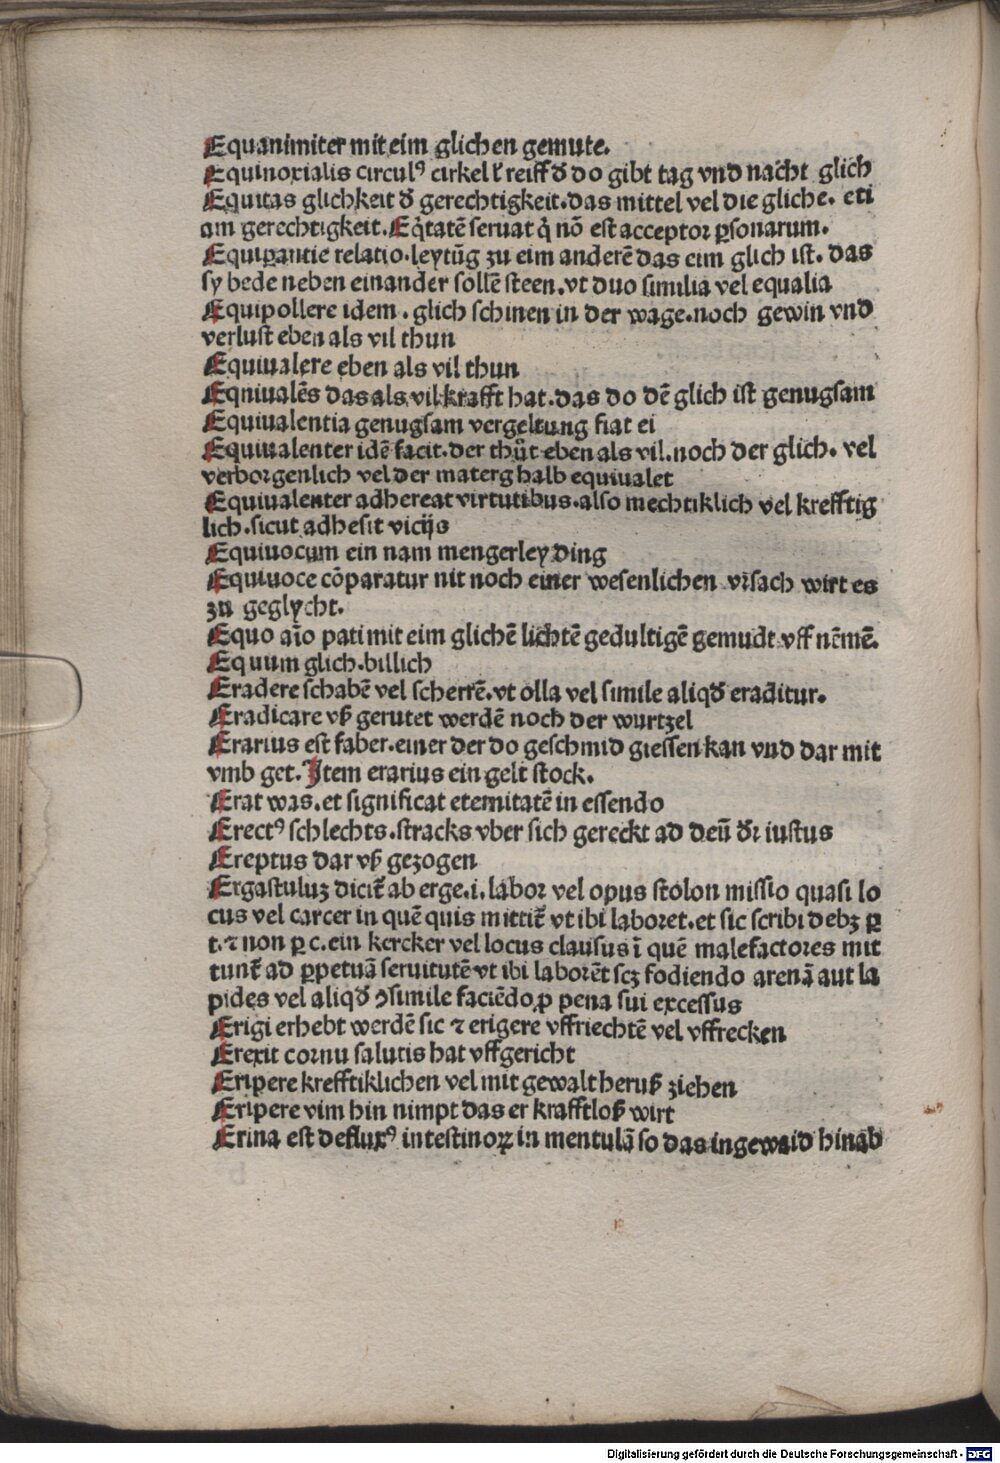 Equanimiter mit eim glichen gemute.
Equinoxialis circulꝰ cirkel ł reiff đ do gibt tag vnd nacht glich
Equitas glichkeit đ gerechtigkeit.das mittel vel die gliche. eti
am gerechtigkeit. Eq̈tatē seruat q̇ nō est acceptor ꝑsonarum.
Equiꝑantie relatio.leytūg zu eim anderē das eim glich ist. das
sy bede neben einander sollē steen.vt duo similia vel equalia
Equipollere idem . glich schinen in der wage.noch gewin vnd
verlust eben als vil thun
Equiualere eben als vil thun
Eqniualēs das als vil krafft hat.das do dē glich ist genugsam
Equiualentia genugsam vergeltung fiat ei
Equiualenter idē facit.der thůt eben als vil.noch der glich. vel
verborgenlich vel der materg halb equiualet
Equiualenter adhereat virtutibus.also mechtiklich vel krefftig
lich.sicut adhesit vicijs
Equiuocum ein nam mengerley ding
Equiuoce cōparatur nit noch einer wesenlichen vrsach wirt es
zu geglycht.
Equo aīo pati mit eim glichē lichtē gedultigē gemudt vff nēmē.
Equum glich.billich
Eradere schabē vel scherrē.vt olla vel simile aliqđ eraditur.
Eradicare vß gerutet werdē noch der wurtzel
Erarius est faber.einer der do geschmid giessen kan vnd dar mit
vmb get. Item erarius ein gelt stock.
Erat was.et significat eternitatē in essendo
Erectꝰ schlechts.stracks vber sich gereckt ad deū đr iustus
Ereptus dar vß gezogen
Ergastuluꝫ dicit̄ ab erge.i.labor vel opus stolon missio quasi lo
cus vel carcer in quē quis mittit̄ vt ibi laboret.et sic scribi debꝫ ꝑ
t.⁊ non ꝑ c.ein kercker vel locus clausus ī quē malefactores mit
tunt̄ ad ꝑpetuā seruitutē vt ibi laborēt scꝫ fodiendo arenā aut la
pides vel aliqđ ꝯsimile faciēdo ꝓ pena sui excessus
Erigi erhebt werdē sic ⁊ erigere vffriechtē vel vffrecken
Erexit cornu salutis hat vffgericht
Eripere krefftiklichen vel mit gewalt heruß ziehen
Eripere vim hin nimpt das er krafftloß wirt
Erina est defluxꝰ intestinoꝝ in mentulā so das ingewaid hinab
Digitalisierung gefördert durch die Deutsche Forschungsgemeinschaft - DFG